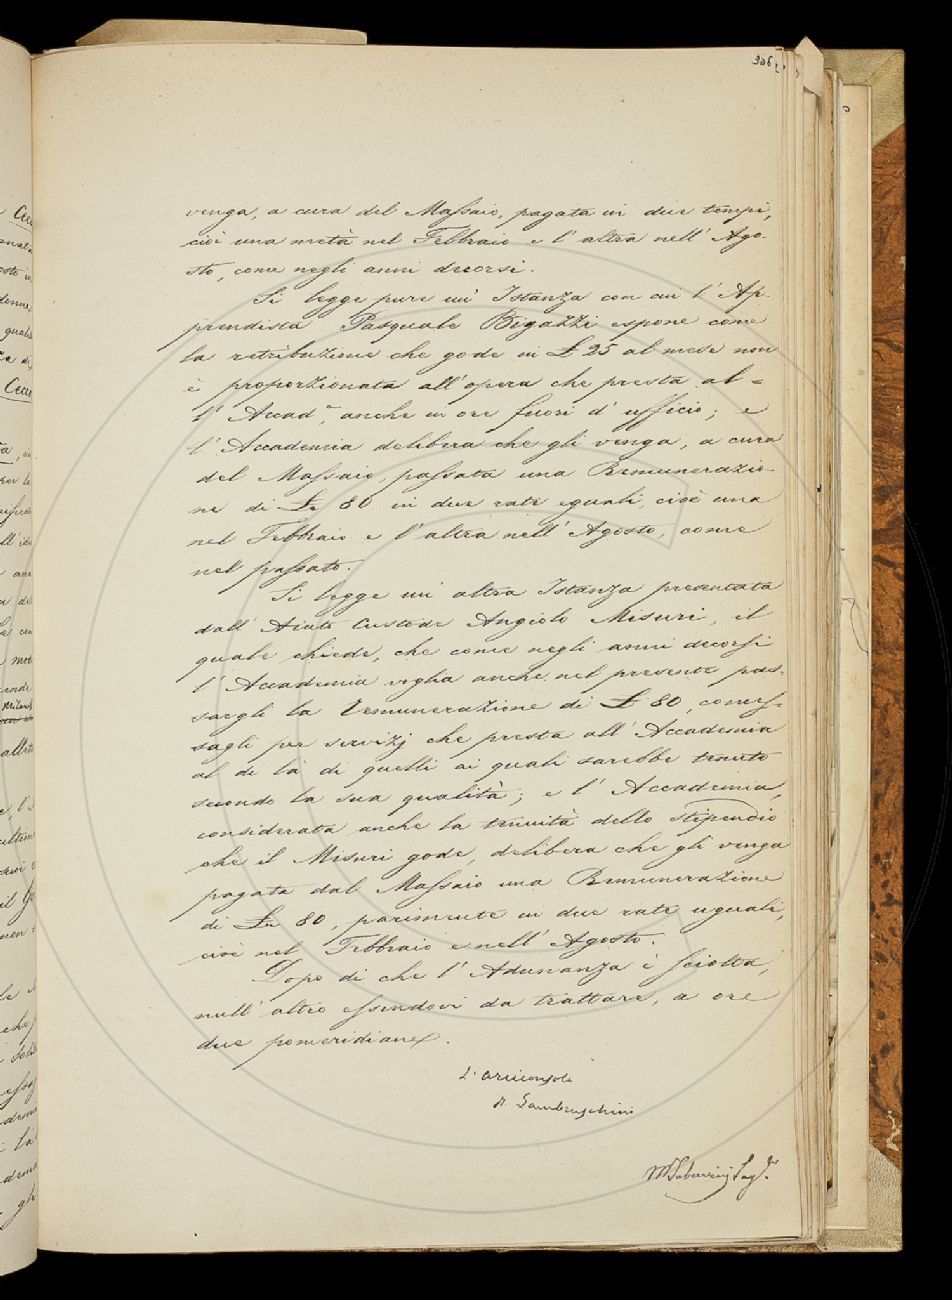 306
venga, a cura del Massaio, pagata in due tempi,
cioè una metà nel Febbraio e l'altra nell'Ago-
sto, come negli anni decorsi.
Si legge pure un'Istanza con cui l'Ap-
prendista Pasquale Bigazzi espone come
la retribuzione che gode in £ 25 al mese non
è proporzionata all'opera che presta al=
l'Accad.ª, anche in ore fuori d'ufficio; e
l'Accademia delibera che gli venga, a cura
del Massaio, passata una Remunerazio-
ne di £e 80 in due rate eguali, cioè una
nel Febbraio e l'altra nell'Agosto, come
nel passato.
Si legge un'altra Istanza presentata
dall'Aiuto Custode Angiolo Misuri, il
quale chiede, che come negli anni decorsi
l'Accademia voglia anche nel presente pas-
sargli la remunerazione di £ 80, conces-
sagli per servizj che presta all'Accademia
al di là di quelli ai quali sarebbe tenuto
secondo la sua qualità; e l'Accademia,
considerata anche la tenuità dello stipendio
che il Misuri gode, delibera che gli venga
pagata dal Massaio una Remunerazione
di £e 80, parimente in due rate uguali,
cioè nel Febbraio e nell'Agosto.
Dopo di che l'Adunanza è sciolta,
null'altro essendovi da trattare, a ore
due pomeridiane.
L'Arciconsolo
R. Lambruschini